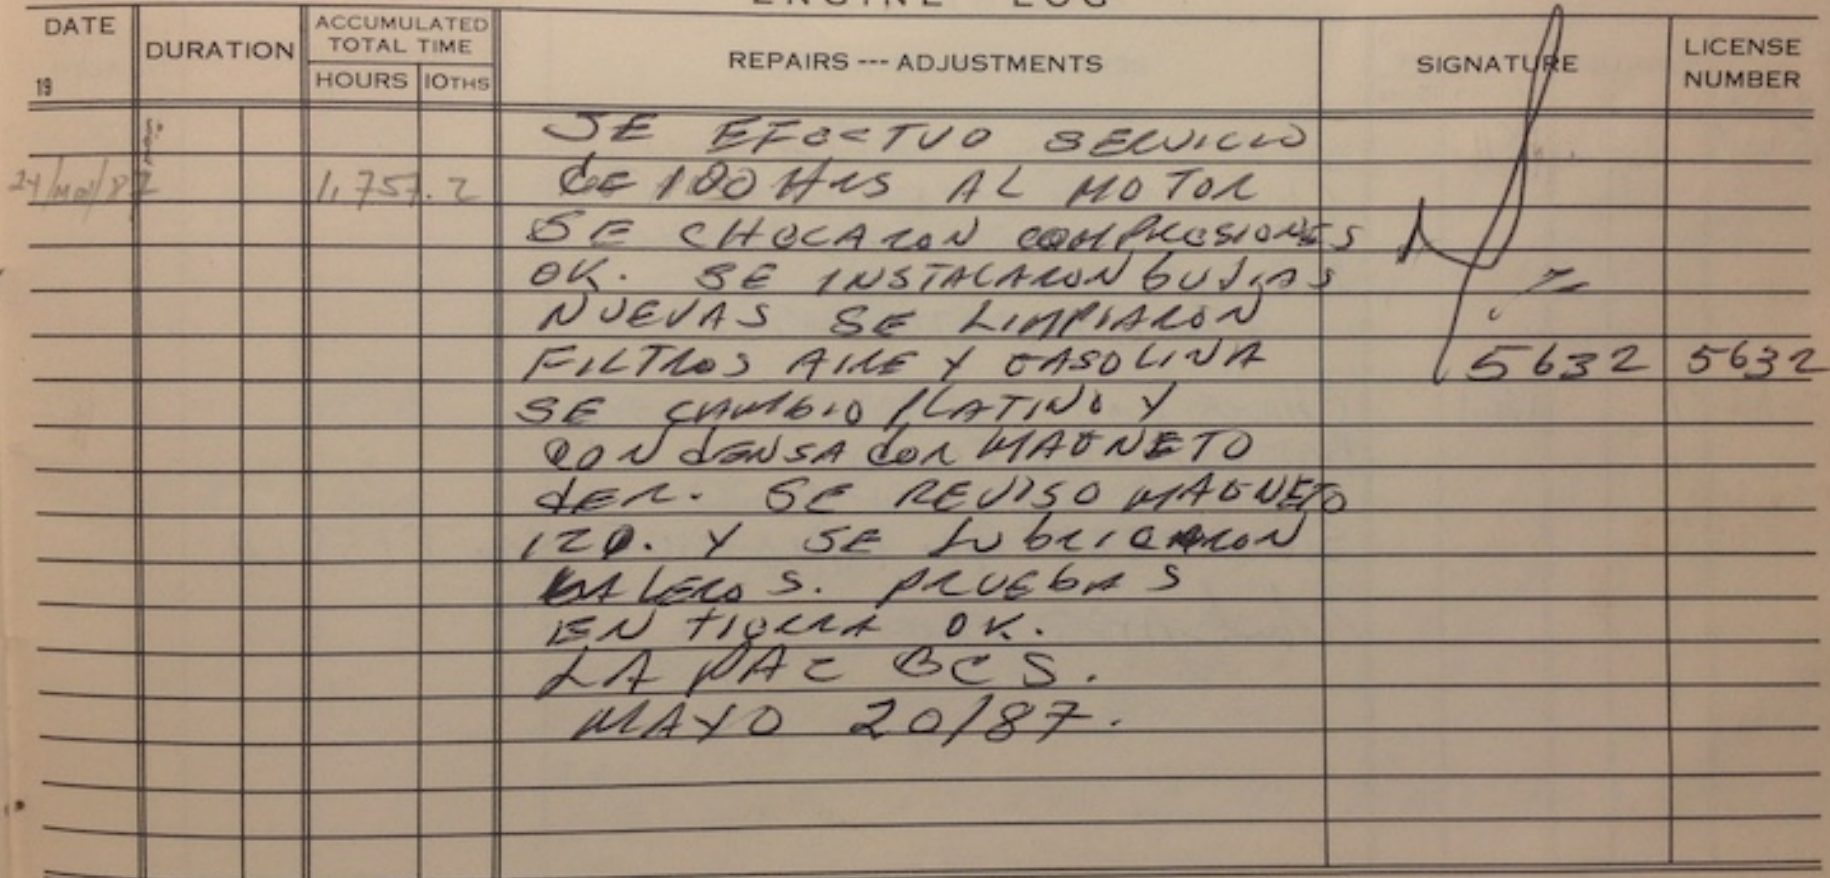 ENGINE LOG
DATE
19
DURATION
ACCUMULATED
TOTAL TIME
HOURS 10THS
REPAIRS --- ADJUSTMENTS
SIGNATURE
LICENSE
NUMBER
SE EFECTUO SERVICIO
24/may/87 1,757.2 de 100 Hrs AL MOTOR
SE CHECARON COMPRESIONES
OK. SE INSTALARON bUJIAS
NUEVAS SE LIMPIARON
FILTROS AIRE Y GASOLINA 5632 5632
SE CAMbIO PLATINO Y
CONdENSAdOR MAGNETO
dER. SE REVISO MAGNETO
IZQ. Y SE LubRICARON
bALEROS. PRUEbAS
EN tIERRA OK.
LA PAZ BCS.
MAYO 20/87.